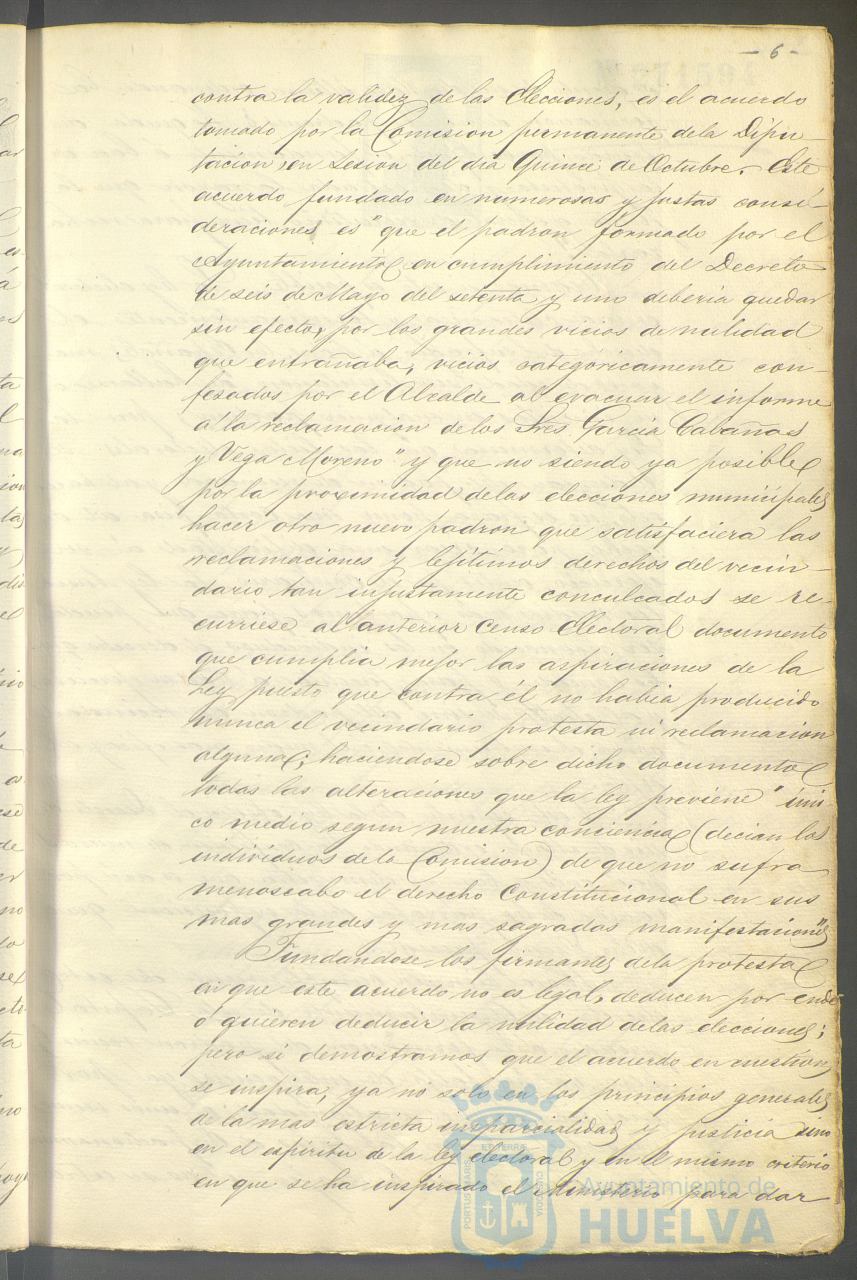 - 6 -
contra la validez de las Elecciones, es el acuerdo
tomado por la Comision permanente dela Dipu-
tacion en Sesion del dia Quince de Octubre. Este
acuerdo fundado en numerosas y justas consi-
deraciones es "que el padron formado por el
Ayuntamiento en cumplimiento del Decreto
de seis de Mayo del setenta y uno deberia quedar
sin efecto, por los grandes vicios de nulidad
que entrañaba, vicios categoricamente con-
fesados por el Alcalde al evacuar el informe
a la reclamacion de los Sres. Garcia Cabañas
y Vega Moreno" y que no siendo ya posible
por la proximidad delas elecciones municipales
hacer otro nuevo padron que satisfaciera las
reclamaciones y lejitimos derechos del vecin-
dario tan injustamente conculcados se re-
curriese al anterior Censo Electoral documento
que cumplia mejor las aspiraciones de la
Ley puesto que contra él no habia producido
nunca el vecindario protesta ni reclamacion
alguna; haciendose sobre dicho documento
todas las alteraciones que la ley previene "úni-
co medio segun nuestra consiencia (decian los
individuos dela Comision) de que no sufra
menoscabo el derecho Constitucional en sus
mas grandes y mas sagradas manifestaciones"
Fundandose los firmantes dela protesta
en que este acuerdo no es legal, deducen por ende
ó quieren deducir la nulidad delas elecciones;
pero si demostramos que el acuerdo en cuestion
se inspira, ya no solo en los principios generales
de la mas estricta imparcialidad y justicia sino
en el espiritu de la ley electoral y en el mismo criterio
en que se ha inspirado el Ministerio para dar
PORTUS MARIS ET TERRAE CUSTODIA
Ayuntamiento de
HUELVA